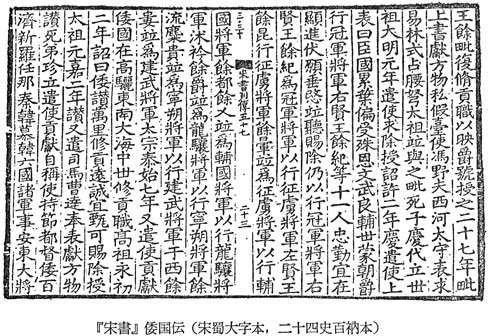 王餘毗復修貢職以映爵號授之二十七年毗
上書獻方物私假臺使馮野夫西河太守表求
易林式占腰弩太祖並與之毗死子慶代立世
祖大明元年遣使求除授詔許二年慶遣使上
表曰臣國累葉偏受殊恩文武良輔世蒙朝爵
行冠軍將軍右賢王餘紀等十一人忠勤宜在
顯進伏願垂愍並聽賜除仍以行冠軍將軍右
賢王餘紀爲冠軍將軍以行征虜將軍左賢王
餘昆行征虜將軍餘暈並爲征虜將軍以行輔
宋書列傳五十七
二十三
國將軍餘都餘乂並爲輔國將軍以行龍驤將
軍沐衿餘爵並爲龍驤將軍以行寧朔將軍餘
流麋貴並爲寧朔將軍以行建武將軍于西餘
婁並爲建武將軍太宗泰始七年又遣使貢獻
倭國在高驪東南大海中世修貢職高祖永初
二年詔曰倭讚萬里修貢遠誠宜甄可賜除授
太祖元嘉二年讚又遣司馬曹達奉表獻方物
讚死弟珍立遣使貢獻自稱使持節都督倭百
濟新羅任那秦韓慕韓六國諸軍事安東大將
『宋書』倭国伝（宋蜀大字本，二十四史百衲本）